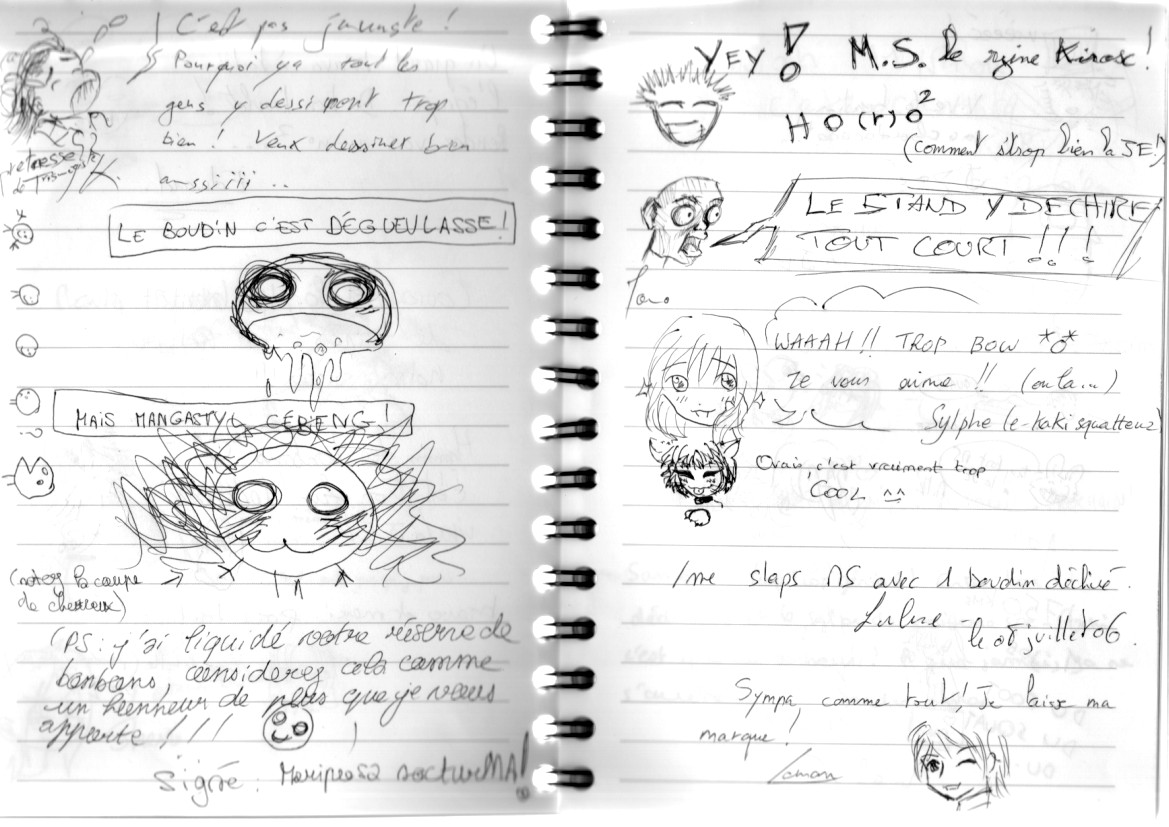 C'est pas jmuuste !
Pourquoi ya tout les
gens y dessinent trop
bien ! Veux dessiner bien
aussiiii ..
LE BOUDIN C'EST DÉGUEULASSE !
MAIS MANGASTYL CÉBIENG !
(notez la coupe
de cheveux) →
(PS : j'ai liquidé votre réserve de
bonbons, considerez cela comme
un honneur de plus que je vous
apporte ! / / /
Signé : Mariposa nocturNA !
YEY ! M.S. le Kirax !
HO(r)O²
(comment s'trop bien la JE !)
LE STAND Y DECHIRE
TOUT COURT !!!
WAAAH !! TROP BOW *o*
Je vous aime !! (ou la...)
Sylphe le-kaki squatteur
Ovais, c'est vraiment trop
COOL ^^
/me slaps NS avec 1 boudin
le 08 juillet 06
Sympa comme tout ! Je laisse ma
marque !